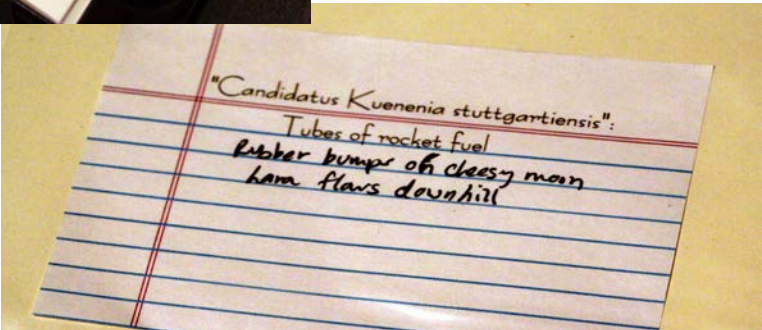 "Candidatus Kuenenia stuttgartiensis":
Tubes of rocket fuel
Rubber bumps on cheesy moon
flows downhill